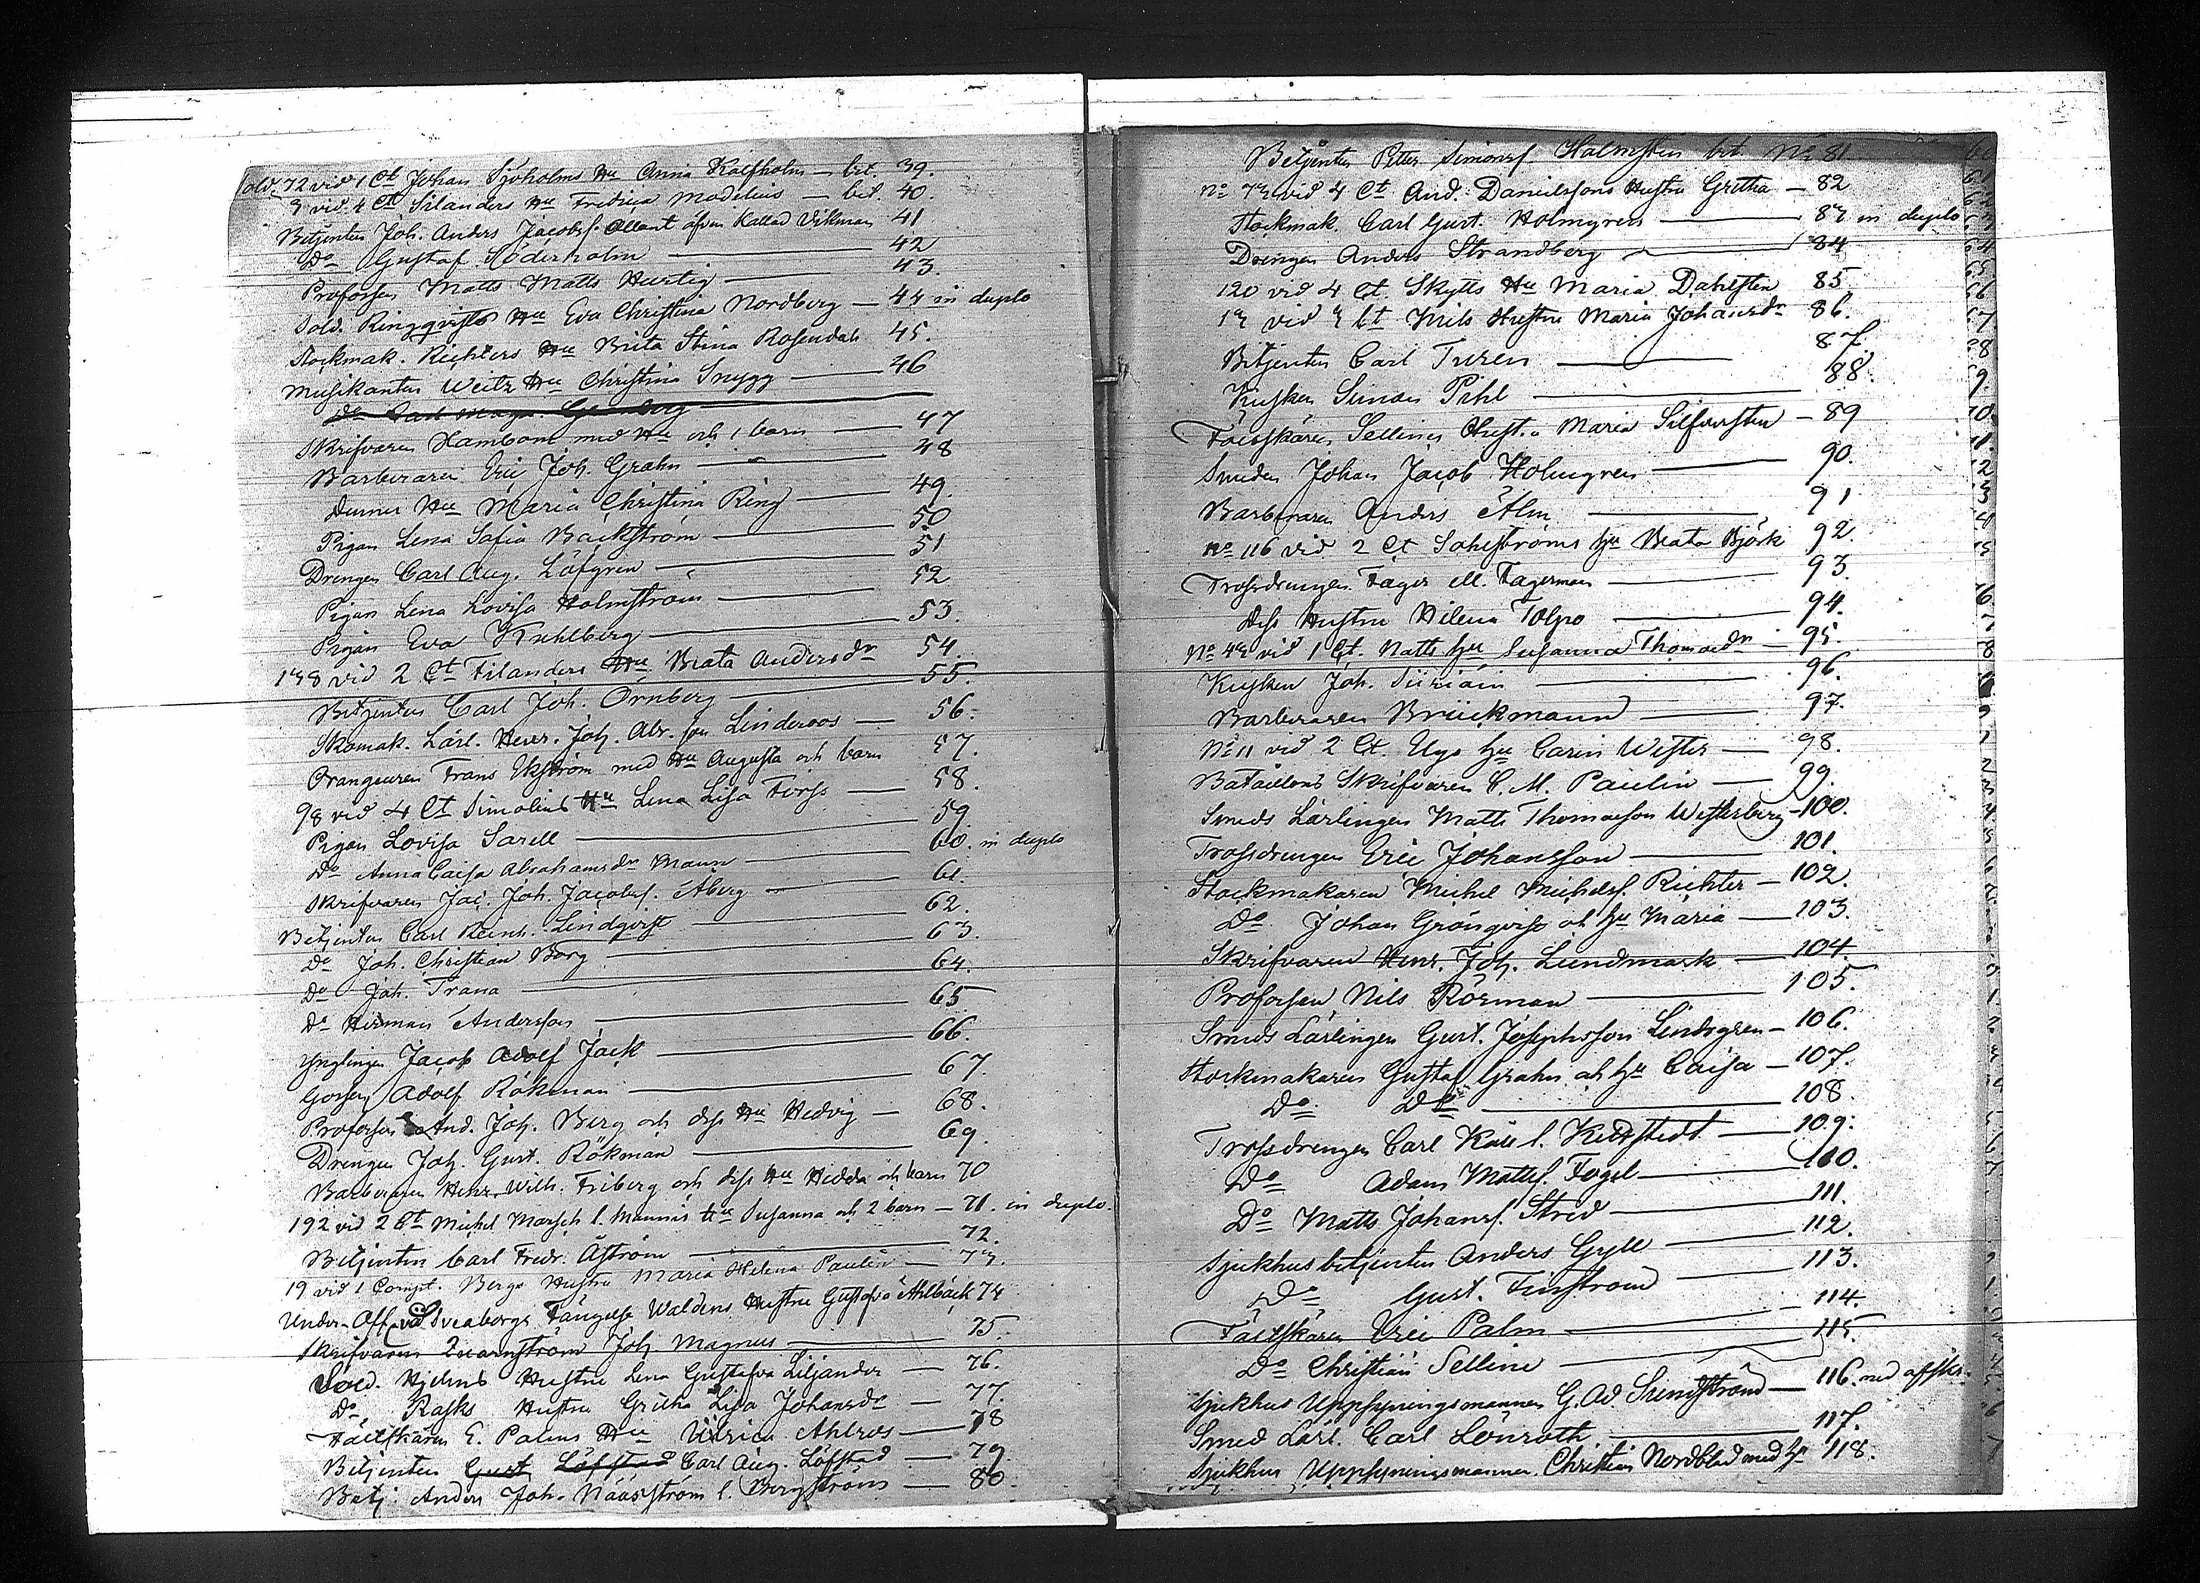 Sold. 72 vid 1 Ct Johan Sjöholms Hu Anna Kalfholm — bet. 39.
9 vid 4 Ct Silanders Hu Fredrica Modelius — bet. 40.
Betjenten Joh. Anders Jacobss. Allant äfven Kallad Vikman 41
Do Gustaf Söderholm — 42
Profossen Matts Matts Hurtig — 43.
Sold. Ringqvists Hu Eva Christina Nordberg — 44 in duplo
Stockmak. Richters Hu Brita Stina Rosendahl 45.
Musikanten Weitz Hu Christina Snygg — 46
Do Carl Magn. Grönberg
Skrifvaren Hambom med Hu och 1 barn — 47
Barberaren Eric Joh. Grahn — 48
Dennes Hu Maria Christina Ring — 49.
Pigan Lena Safia Backström — 50
Drengen Carl Aug. Löfgren — 51
Pigan Lena Lovisa Holmström — 52
Pigan Eva Kuhlberg — 53.
138 vid 2 Ct Filanders Hu Beata Andersdr 54.
Betjenten Carl Joh. Örnberg — 55.
Skomak. Lärl. Henr. Joh. Abr. son Linderoos — 56.
Orangeuren Frans Ekström med Hu Augusta och barn 57.
98 vid 4 Ct Simolins Hu Lena Lisa Forss — 58.
Pigan Lovisa Sarell — 59
Do Anna Caisa Abrahamsdr Mann — 60. in duplo
Skrifvaren Jac. Joh. Jacobss. Åberg — 61.
Betjenten Carl Reinh. Lindqvist — 62.
Do Joh. Christian Borg — 63.
Do Joh. Trana — 64.
Do Herman Andersson — 65
Ynglingen Jacob Adolf Jack — 66.
Gossen Adolf Rökman — 67.
Profossen And. Joh. Berg och dess Hu Hedvig — 68.
Drengen Joh. Gust. Rökman — 69.
Barberaren Henr. Wilh. Friberg och dess Hu Hedda och barn 70
192 vid 2 Ct Michel Marsch l. Mannis Hu Susanna och 2 barn — 71. in duplo.
Betjenten Carl Fredr. Åström — 72.
19 vid 1 Compt. Bergs Hustru Maria Helena Paulin — 73.
Under-Off. vid Sveaborgs Fängelse Waldens Hustru Gustafva Ahlbäck 74
Skrifvaren Qvarnström Joh. Magnus — 75.
Sold. Hjelms Hustru Lena Gustafva Liljander — 76.
Do Rasks Hustru Gretha Lisa Johansdr — 77.
Fältskären E. Palms Hu Ulrica Ahlroos — 78
Betjenten Gust. Löfstad Carl Aug. Löfstad — 79
Betj. Anders Joh. Nääsström l. Bergström — 80.
Betjenten Petter Simonss. Holmsten bet No 81
No 73 vid 4 Ct And. Danielssons Hustru Gretha — 82
Stockmak. Carl Gust. Holmgren — 83 in duplo
Drengen Anders Strandberg — 84
120 vid 4 Ct. Skytts Hu Maria Dahlsten 85.
13 vid 3 Ct Nils Hustru Maria Johansdr 86.
Betjenten Carl Turen — 87.
Kusken Simon Pihl — 88.
Fältskären Sellines Hustru Maria Silfversten — 89
Smeden Johan Jacob Holmgren — 90.
Barberaren Anders Alm — 91
No 116 vid 2 Ct Sohlströms hu Beata Björk 92.
Trossdrengen Fager ell. Fagerman — 93.
Dess Hustru Helena Tolpo — 94.
No 43 vid 1 Ct. Natts hu Susanna Thomasdr — 95.
Kusken Joh. Siriain — 96.
Barberaren Brückmann — 97.
No 11 vid 2 Ct. Ugs hu Carin Wester — 98.
Bataillons Skrifvaren C. M. Paulin — 99.
Smeds Lärlingen Matts Thomasson Westerberg — 100.
Trossdrengen Eric Johansson — 101.
Stockmakaren Michel Michelss. Richter — 102.
Do Johan Grönqvist ock hu Maria — 103.
Skrifvaren Henr. Joh. Lundmark — 104.
Profossen Nils Rörman — 105.
Smeds Lärlingen Gust. Josephsson Lindgren — 106.
Stockmakaren Gustaf Grahn och hu Caisa — 107.
Do Do — 108.
Trossdrengen Carl Käll l. Kellstedt — 109.
Do Adam Mattss. Fogel — 110.
Do Matts Johanss. Strid — 111.
Sjukhusbetjenten Anders Gyll — 112.
Do Gust. Finström — 113.
Fältskären Eric Palm — 114.
Do Christian Selline — 115.
Sjukhus Uppsyningsmannen G. Ad. Sundström — 116. med afskr.
Smed Lärl. Carl Lönroth — 117.
Sjukhus Uppsyningsmannen Christian Nordblad med hu 118.